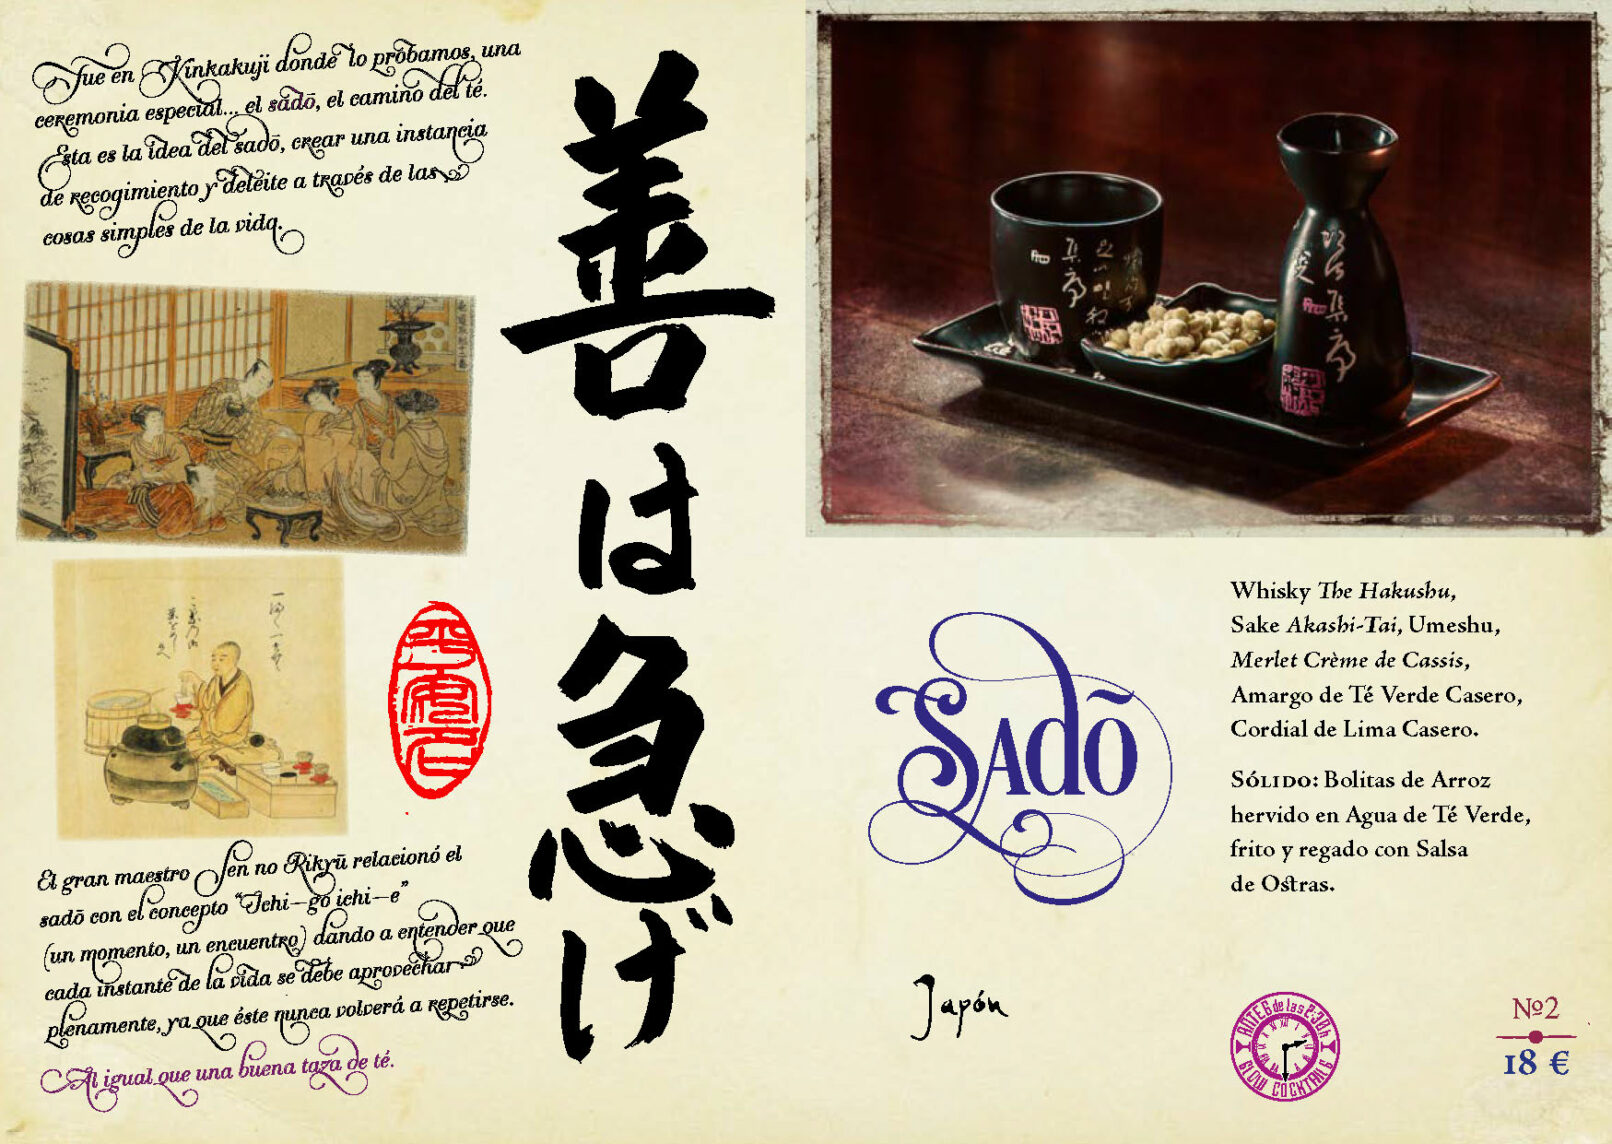 Fue en Kinkakuji donde lo probamos, una
ceremonia especial... el sadō, el camino del té.
Esta es la idea del sadō, crear una instancia
de recogimiento y deleite a través de las
cosas simples de la vida.
El gran maestro Sen no Rikyū relacionó el
sadō con el concepto “Ichi-go ichi-e”
(un momento, un encuentro) dando a entender que
cada instante de la vida se debe aprovechar
plenamente, ya que éste nunca volverá a repetirse.
Al igual que una buena taza de té.
善は急げ
Sadō
Whisky The Hakushu,
Sake Akashi-Tai, Umeshu,
Merlet Crème de Cassis,
Amargo de Té Verde Casero,
Cordial de Lima Casero.
SÓLIDO: Bolitas de Arroz
hervido en Agua de Té Verde,
frito y regado con Salsa
de Ostras.
Japón
ANTES de las 2:30h
SLOW COCKTAILS
Nº2
18 €